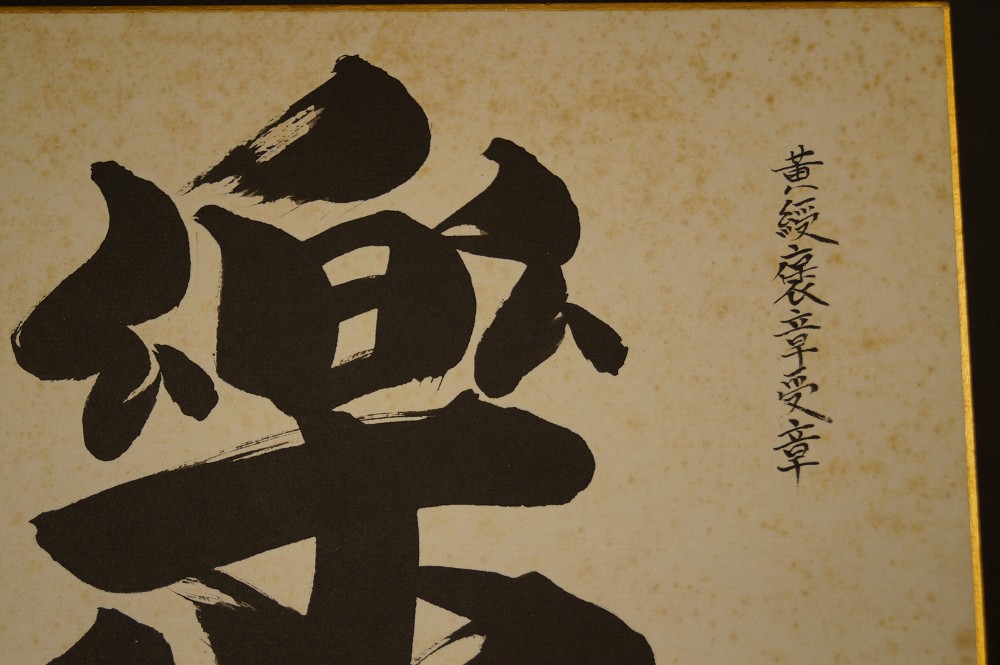 黄綬褒章受章
樂